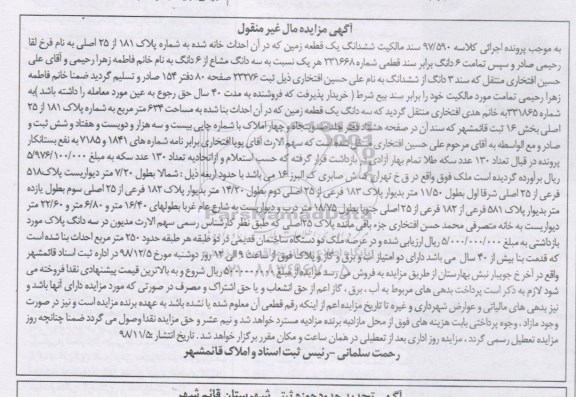 آگهی مزایده مال غیر منقول
به موجب پرونده اجرائی کلاسه ۹۷/۵۹۰ سند مالکیت ششدانگ یک قطعه زمین که در آن احداث خانه شده به شماره پلاک ۱۸۱ از ۲۵ اصلی به نام فرخ لقا
رحیمی صادر و سپس تمامت ۶ دانگ برابر سند قطعی شماره ۲۳۱۶۶۸ هر یک نسبت به سه دانگ مشاع از ۶ دانگ به نام خانم فاطمه زهرا رحیمی و آقای علی
حسین افتخاری منتقل که سند ۳ دانگ از ششدانگ به نام علی حسین افتخاری ذیل ثبت ۲۳۳۷۶ صفحه ۸۰ دفتر ۱۵۴ صادر و تسلیم گردید ضمنا خانم فاطمه
زهرا رحیمی تمامت مورد مالکیت خود را برابر سند بیع شرط ( خریدار پذیرفت که فروشنده به مدت ۴۰ سال حق رجوع به عین مورد معامله را داشته باشد )به
شماره ۲۳۱۸۶۵به خانم هدی افتخاری منتقل گردید که سه دانگ یک قطعه زمین که در آن احداث بنا شده به مساحت ۶۳۴ متر مربع به شماره پلاک ۱۸۱ از ۲۵
اصلی بخش ۱۶ ثبت قائمشهر که سند آن در صفحه هشتاد دفتر جلد پنجاه و چهار املاک با شماره چاپی بیست و سه هزار و دویست و هفتاد و شش ثبت و
صادر و مع الواسطه به آقای مرحوم علی حسین افتخاری انتقال یافته است که سهم الارث آقای پویا افتخاری برابر نامه شماره های ۱۸۴۱ و ۷۱۸۵ به نفع بستانکار
در قبال تعداد ۱۳۰ عدد سکه طلا تمام بهار آزادی بازداشت قرار گرفته که حسب استعلام و ازاتحادیه تعداد ۱۳۰ عدد سکه به مبلغ ۵/۹۷۶/۱۰۰/۰۰۰
ریال برآورده گردیده است ملک فوق واقع در ق خ تهران کفاش صابری ک البرز ۱۶ می باشد با حدود اربعه ذیل : شمالا بطول ۷/۲۰ متر دیواریست پلاک ۵۱۸
فرعی از ۲۵ اصلی شرقا اول بطول ۱۱/۵۰ متر بدیوار پلاک ۱۸۳ فرعی از ۲۵ اصلی دوم بطول ۱۴/۲۰ متر بدیوار پلاک ۱۸۲ فرعی از ۲۵ اصلی سوم بطول یازده
متر بدیوار پلاک ۵۸۱ فرعی از ۱۸۲ فرعی از ۲۵ اصلی جنوبا بطول ۱۸/۷۵ متر درب و دیواریست به شارع عام غربا بطولهای ۱۶/۴۰ متر و ۶/۸۰ متر و ۲۲/۶۰ متر
دیواریست به خانه متصرفی محمد حسن افتخاری جزء باقی مانده پلاک ۲۵اصلی که طبق نظر کارشناس رسمی سهم الارث مدیون در سه دانگ پلاک مورد
بازداشتی به مبلغ ۵/۰۰۰/۰۰۰/۰۰۰ ریال ارزیابی شده و در عرصه ملک فوق دستگاه ساختمان قدیمی در دو طبقه هر طبقه حدود ۲۵۰ متر مربع احداث بنا شده است
که قدمت بنا بیش از ۴۰ سال می باشد دارای دو امتیاز آب و برق و گاز و پلاک فوق از ساعت ۹ الی ۱۲ روز دوشنبه مورخ ۹۸/۱۲/۵ در اداره ثبت اسناد قائمشهر
واقع در آخر خ جویبار نبش بهارستان از طریق مزایده به فروش می رسد مزایده از مبلغ ۵/۰۰۰/۰۰۰/۰۰۰ ریال شروع و به بالاترین قیمت پیشنهادی نقدا فروخته می
شود لازم به ذکر است پرداخت بدهی های مربوط به آب ، برق ، گاز اعم از حق انشعاب و یا حق اشتراک و مصرف در صورتی که مورد مزایده دارای آنها باشد و
نیز بدهی های مالیاتی و عوارض شهرداری و غیره تا تاریخ مزایده اعم از اینکه رقم قطعی آن معلوم شده یا نشده باشد به عهده برنده مزایده است و نیز در صورت
وجود مازاد ، وجوه پرداختی بابت هزینه های فوق از محل مازاد به برنده مزایده مسترد خواهد شد و نیم عشر و حق مزایده نقدا وصول می گردد ضمنا چنانچه روز
مزایده تعطیل رسمی گردد ، مزایده روز اداری بعد از تعطیلی در همان ساعت و مکان مقرر برگزار خواهد شد . تاریخ انتشار :۹۸/۱۱/۵
رحمت سلمانی -رئیس ثبت اسناد و املاک قائمشهر
آگهی تحدید حدود حوزه ثبتی شهرستان قائم شهر